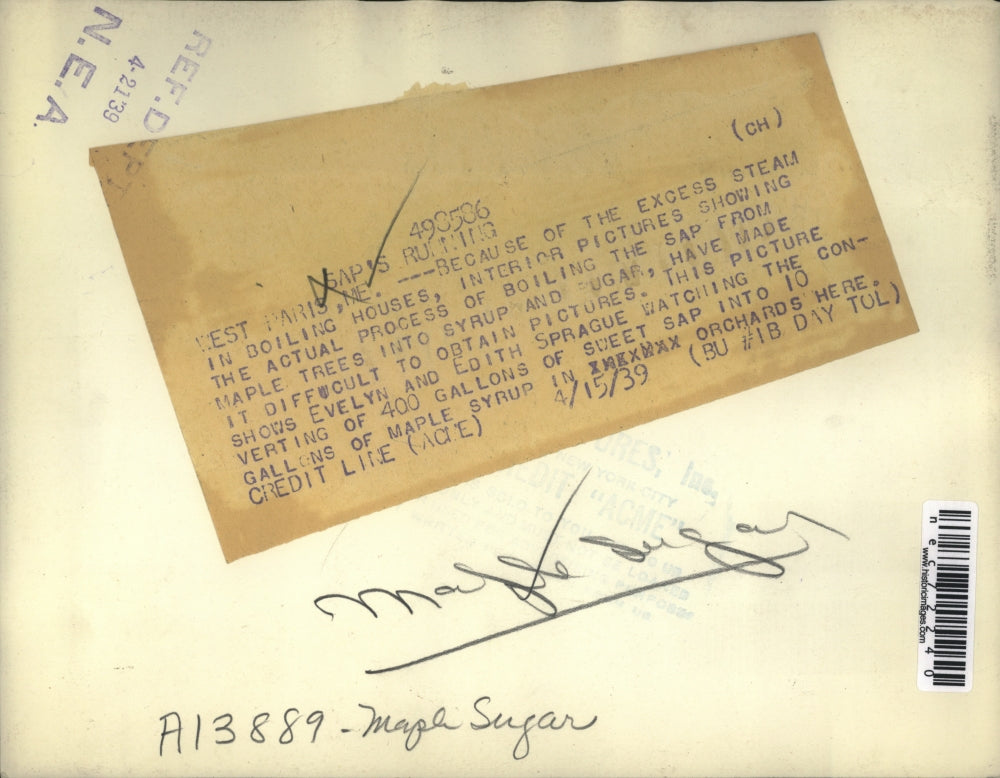 REF. DEPT
4-21 39
N.E.A.
(CH)
498586
SAP'S RUNNING
WEST PARIS, ME. ---BECAUSE OF THE EXCESS STEAM
IN BOILING HOUSES, INTERIOR PICTURES SHOWING
THE ACTUAL PROCESS OF BOILING THE SAP FROM
MAPLE TREES INTO SYRUP AND SUGAR, HAVE MADE
IT DIFFUCULT TO OBTAIN PICTURES. THIS PICTURE
SHOWS EVELYN AND EDITH SPRAGUE WATCHING THE CON-
VERTING OF 400 GALLONS OF SWEET SAP INTO 10
GALLONS OF MAPLE SYRUP IN ORCHARDS HERE.
CREDIT LINE (ACME) 4/15/39 (BU #1B DAY TOL)
URES, Inc,
NEW YORK CITY
EDIT "ACME"
Maple Sugar
A13889 - Maple Sugar
nec72240
www.historicimages.com